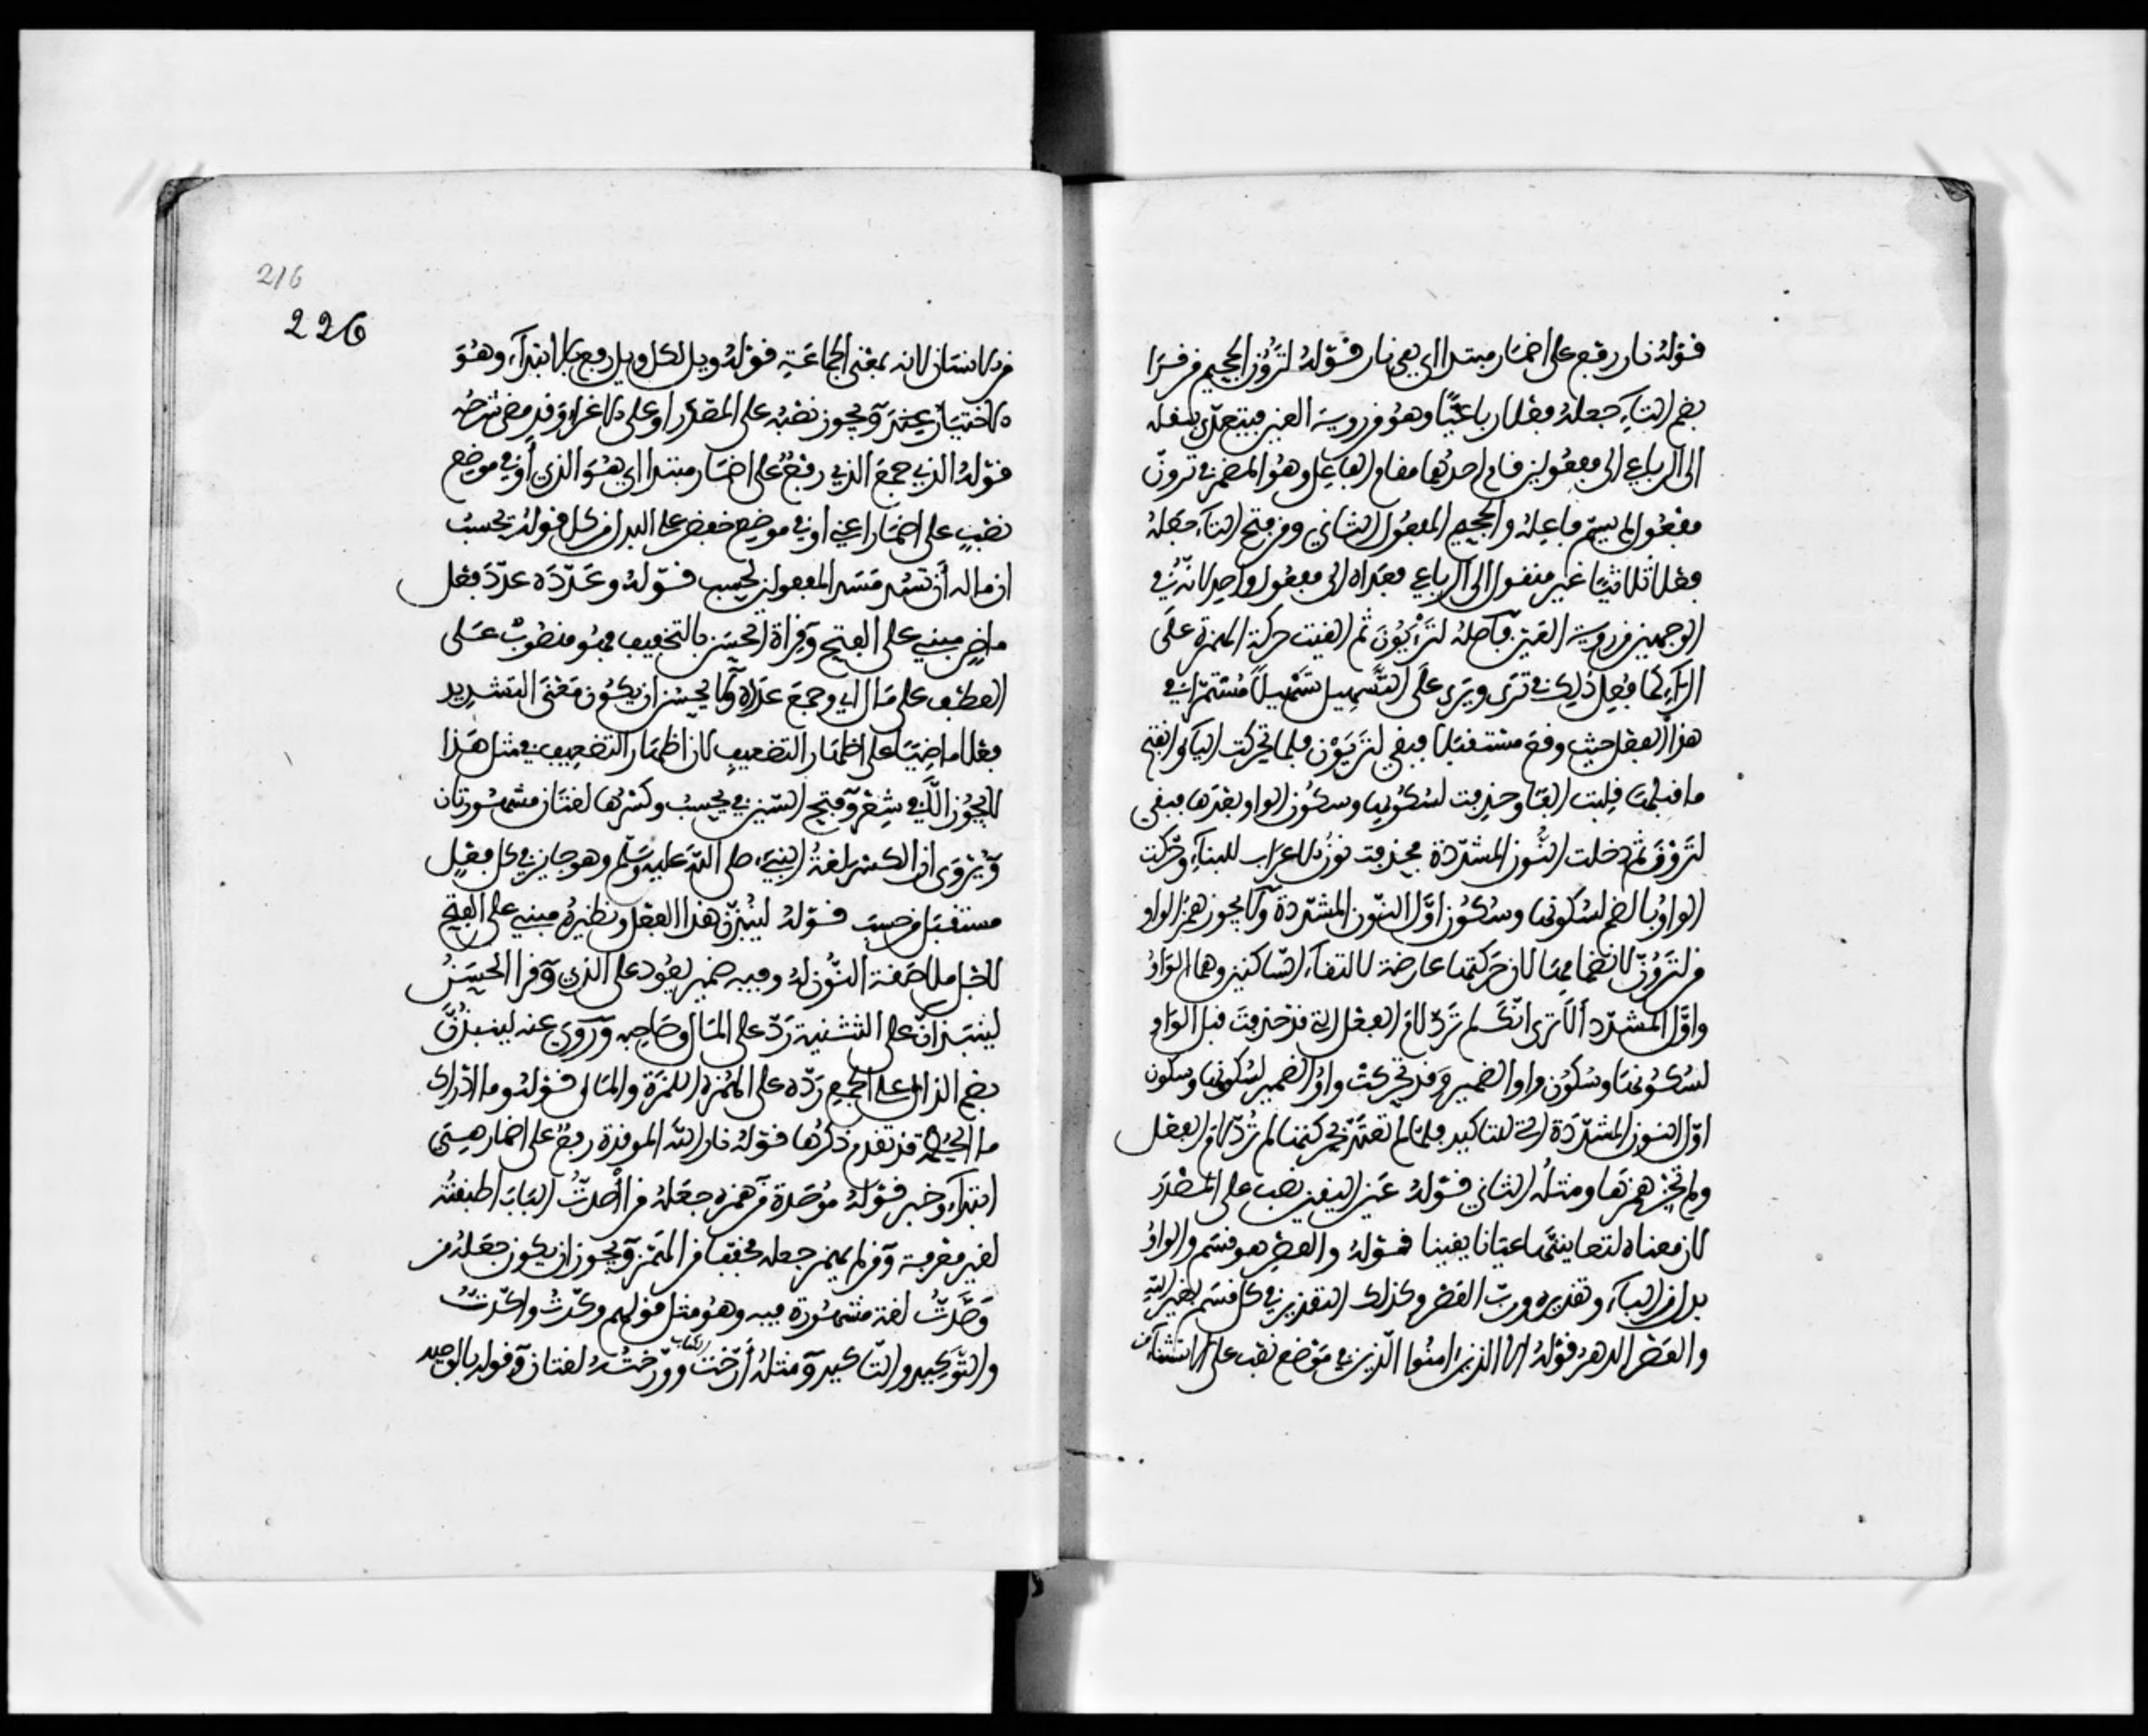 قوله نار رفع على اضمار مبتدا اي هي نار قوله لترون الجحيم من قرا
بضم التاء جعله فعلا رباعيا وهو من روية العين فيتعدى بنقله
الى الرباعي الى مفعولين قام احدهما مقام الفاعل وهو المضمر في ترون
مفعول لم يسم فاعله والجحيم المفعول الثاني ومن فتح التاء جعله
فعلا ثلاثيا غير منقول الى الرباعي فعداه الى مفعول واحد لانه في
الوجهين من روية العين واصله لترأيون ثم القيت حركة الهمزة على
الراء كما فعل ذلك في ترى ويرى على التسهيل تسهيلا مستمرا في
هذا الفعل حيث وقع مستقبلا فبقي لتريون فلما تحركت الياء وانفتح
ما قبلها قلبت الفا وحذفت لسكونها وسكون الواو بعدها فبقي
لترون ثم دخلت النون المشددة فحذفت نون الاعراب للبناء وحركت
الواو بالضم لسكونها وسكون اول النون المشددة ولا يجوز همز الواو
من لترون لانضمامها لان حركتها عارضة لالتقاء الساكنين وهما الواو
واول المشدد ألا ترى انك لم ترد لام الفعل التي قد حذفت قبل الواو
لسكونها وسكون واو الضمير وقد تحركت واو الضمير لسكونها وسكون
اول النون المشددة التي للتاكيد فلما لم تعتد بحركتها لم ترد لام الفعل
ولم تجز همزها ومثله الثاني قوله عين اليقين نصب على المصدر
لان معناه لتعاينها عيانا يقينا قوله والعصر هو قسم والواو
بدل من الباء وتقديره ورب العصر وكذلك التقدير في كل قسم بغير الله
والعصر الدهر قوله الا الذين امنوا الذين في موضع نصب على الاستثناء
من الانسان لانه بمعنى الجماعة قوله ويل لكل ويل رفع بالابتداء وهو
الاختيار ويجوز نصبه على المصدر او على الاغراء وقد مضى شرحه
قوله الذي جمع الذي رفع على اضمار مبتدا اي هو الذي أو في موضع
نصب على اضمار اعني او في موضع خفض على البدل من كل قوله يحسب
ان ماله أن تسد مسد المفعولين ليحسب قوله وعدده عدد فعل
ماض مبني على الفتح وقراة الحسن بالتخفيف فهو منصوب على
العطف على مال اي وجمع عدده ولا يحسن ان يكون معنى التشديد
فعلا ماضيا على اظهار التضعيف لان اظهار التضعيف في مثل هذا
لا يجوز الا في شعر وفتح السين في يحسب وكسرها لغتان مشهورتان
ويروى ان الكسر لغة النبيء صلى الله عليه وسلم وهو جايز في كل فعل
مستقبل من حسب قوله لينبذن هذا الفعل ونظيره مبني على الفتح
لاجل ملاصقة النون له وفيه ضمير يعود على الذي وقرا الحسن
لينبذان على التثنية رد على المال وصاحبه وروي عنه لينبذن
بضم الذال على الجمع رده على الهمزة اللمزة والمال قوله وما ادراك
ما الحطمة قد تقدم ذكرها قوله نار الله الموقدة رفع على اضمار هي
ابتداء وخبر قوله موصدة من همزه جعله من أأصدت الباب اطبقته
لغير معرفة ومن لم يهمز جعله مخففا من الهمز ويجوز ان يكون جعله من
وصدت لغة مشهورة فيه وهو مثل قولهم وكدت واكدت
والتوكيد والتاكيد ومثله أرخت الكتاب وورخته لغتان وقوله بالوصيد
216
226